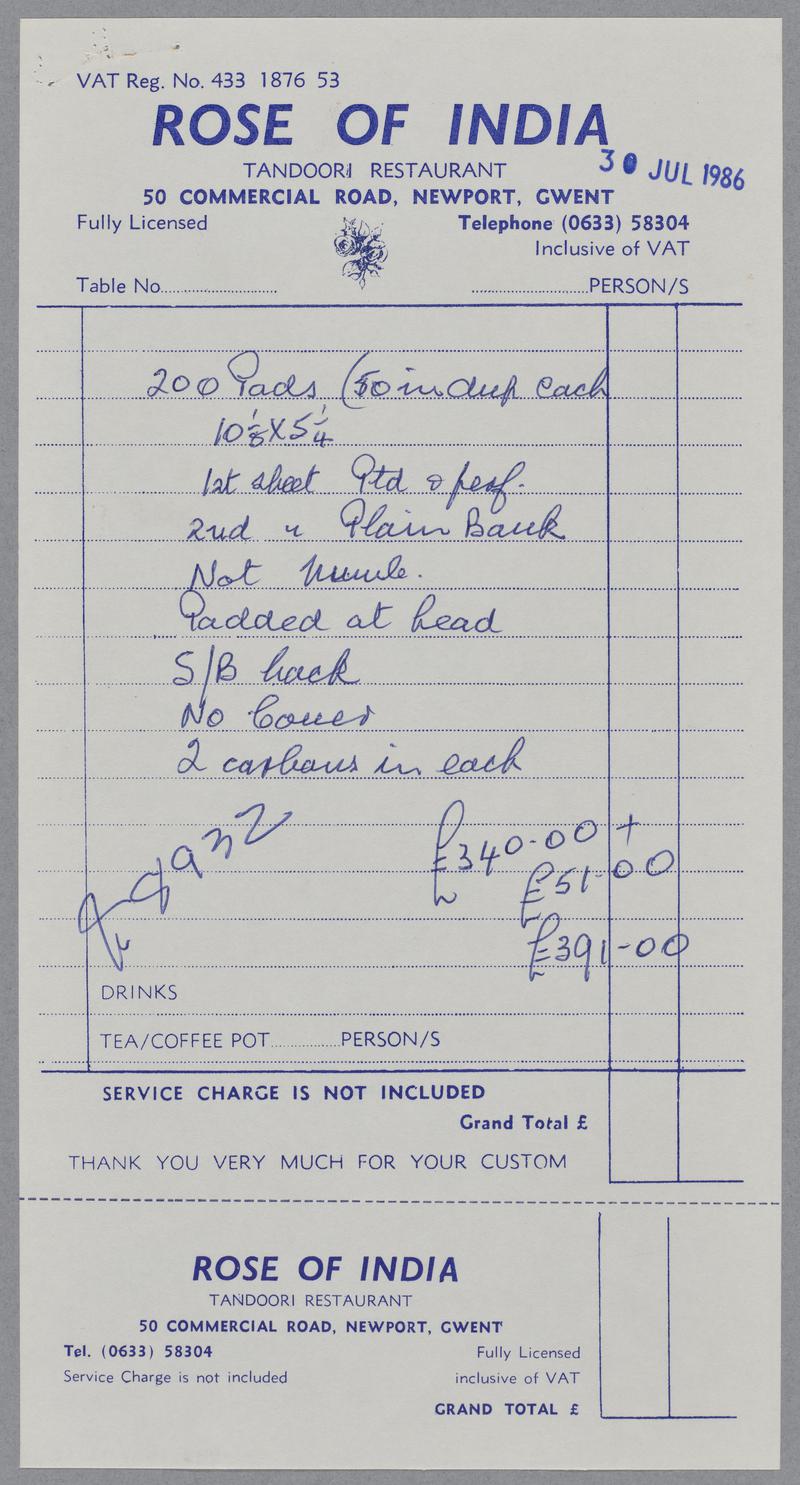 VAT Reg. No. 433 1876 53
ROSE OF INDIA
TANDOORI RESTAURANT
30 JUL 1986
50 COMMERCIAL ROAD, NEWPORT, GWENT
Fully Licensed Telephone (0633) 58304
Inclusive of VAT
Table No. PERSON/S
200 Pads (50 in dup each
10 1/8 X 5 1/4
1st sheet Ptd & perf.
2nd " Plain Bank
Not
Padded at head
S/B back
No Cover
2 carbons in each
£340-00 +
£51-00
£391-00
DRINKS
TEA/COFFEE POT PERSON/S
SERVICE CHARGE IS NOT INCLUDED
Grand Total £
THANK YOU VERY MUCH FOR YOUR CUSTOM
ROSE OF INDIA
TANDOORI RESTAURANT
50 COMMERCIAL ROAD, NEWPORT, GWENT
Tel. (0633) 58304 Fully Licensed
Service Charge is not included inclusive of VAT
GRAND TOTAL £